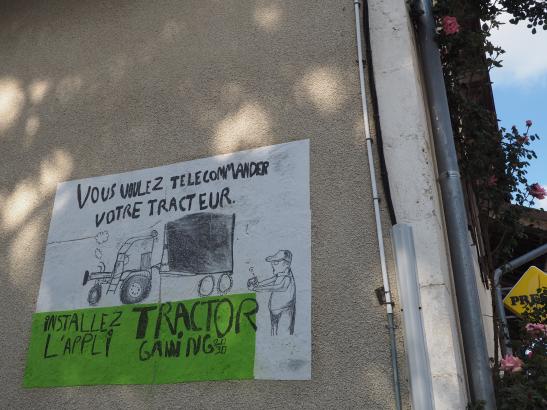 VOUS VOULEZ TELECOMMANDER
VOTRE TRACTEUR.
INSTALLEZ
L'APPLI
TRACTOR
GAMING
2030
PRE